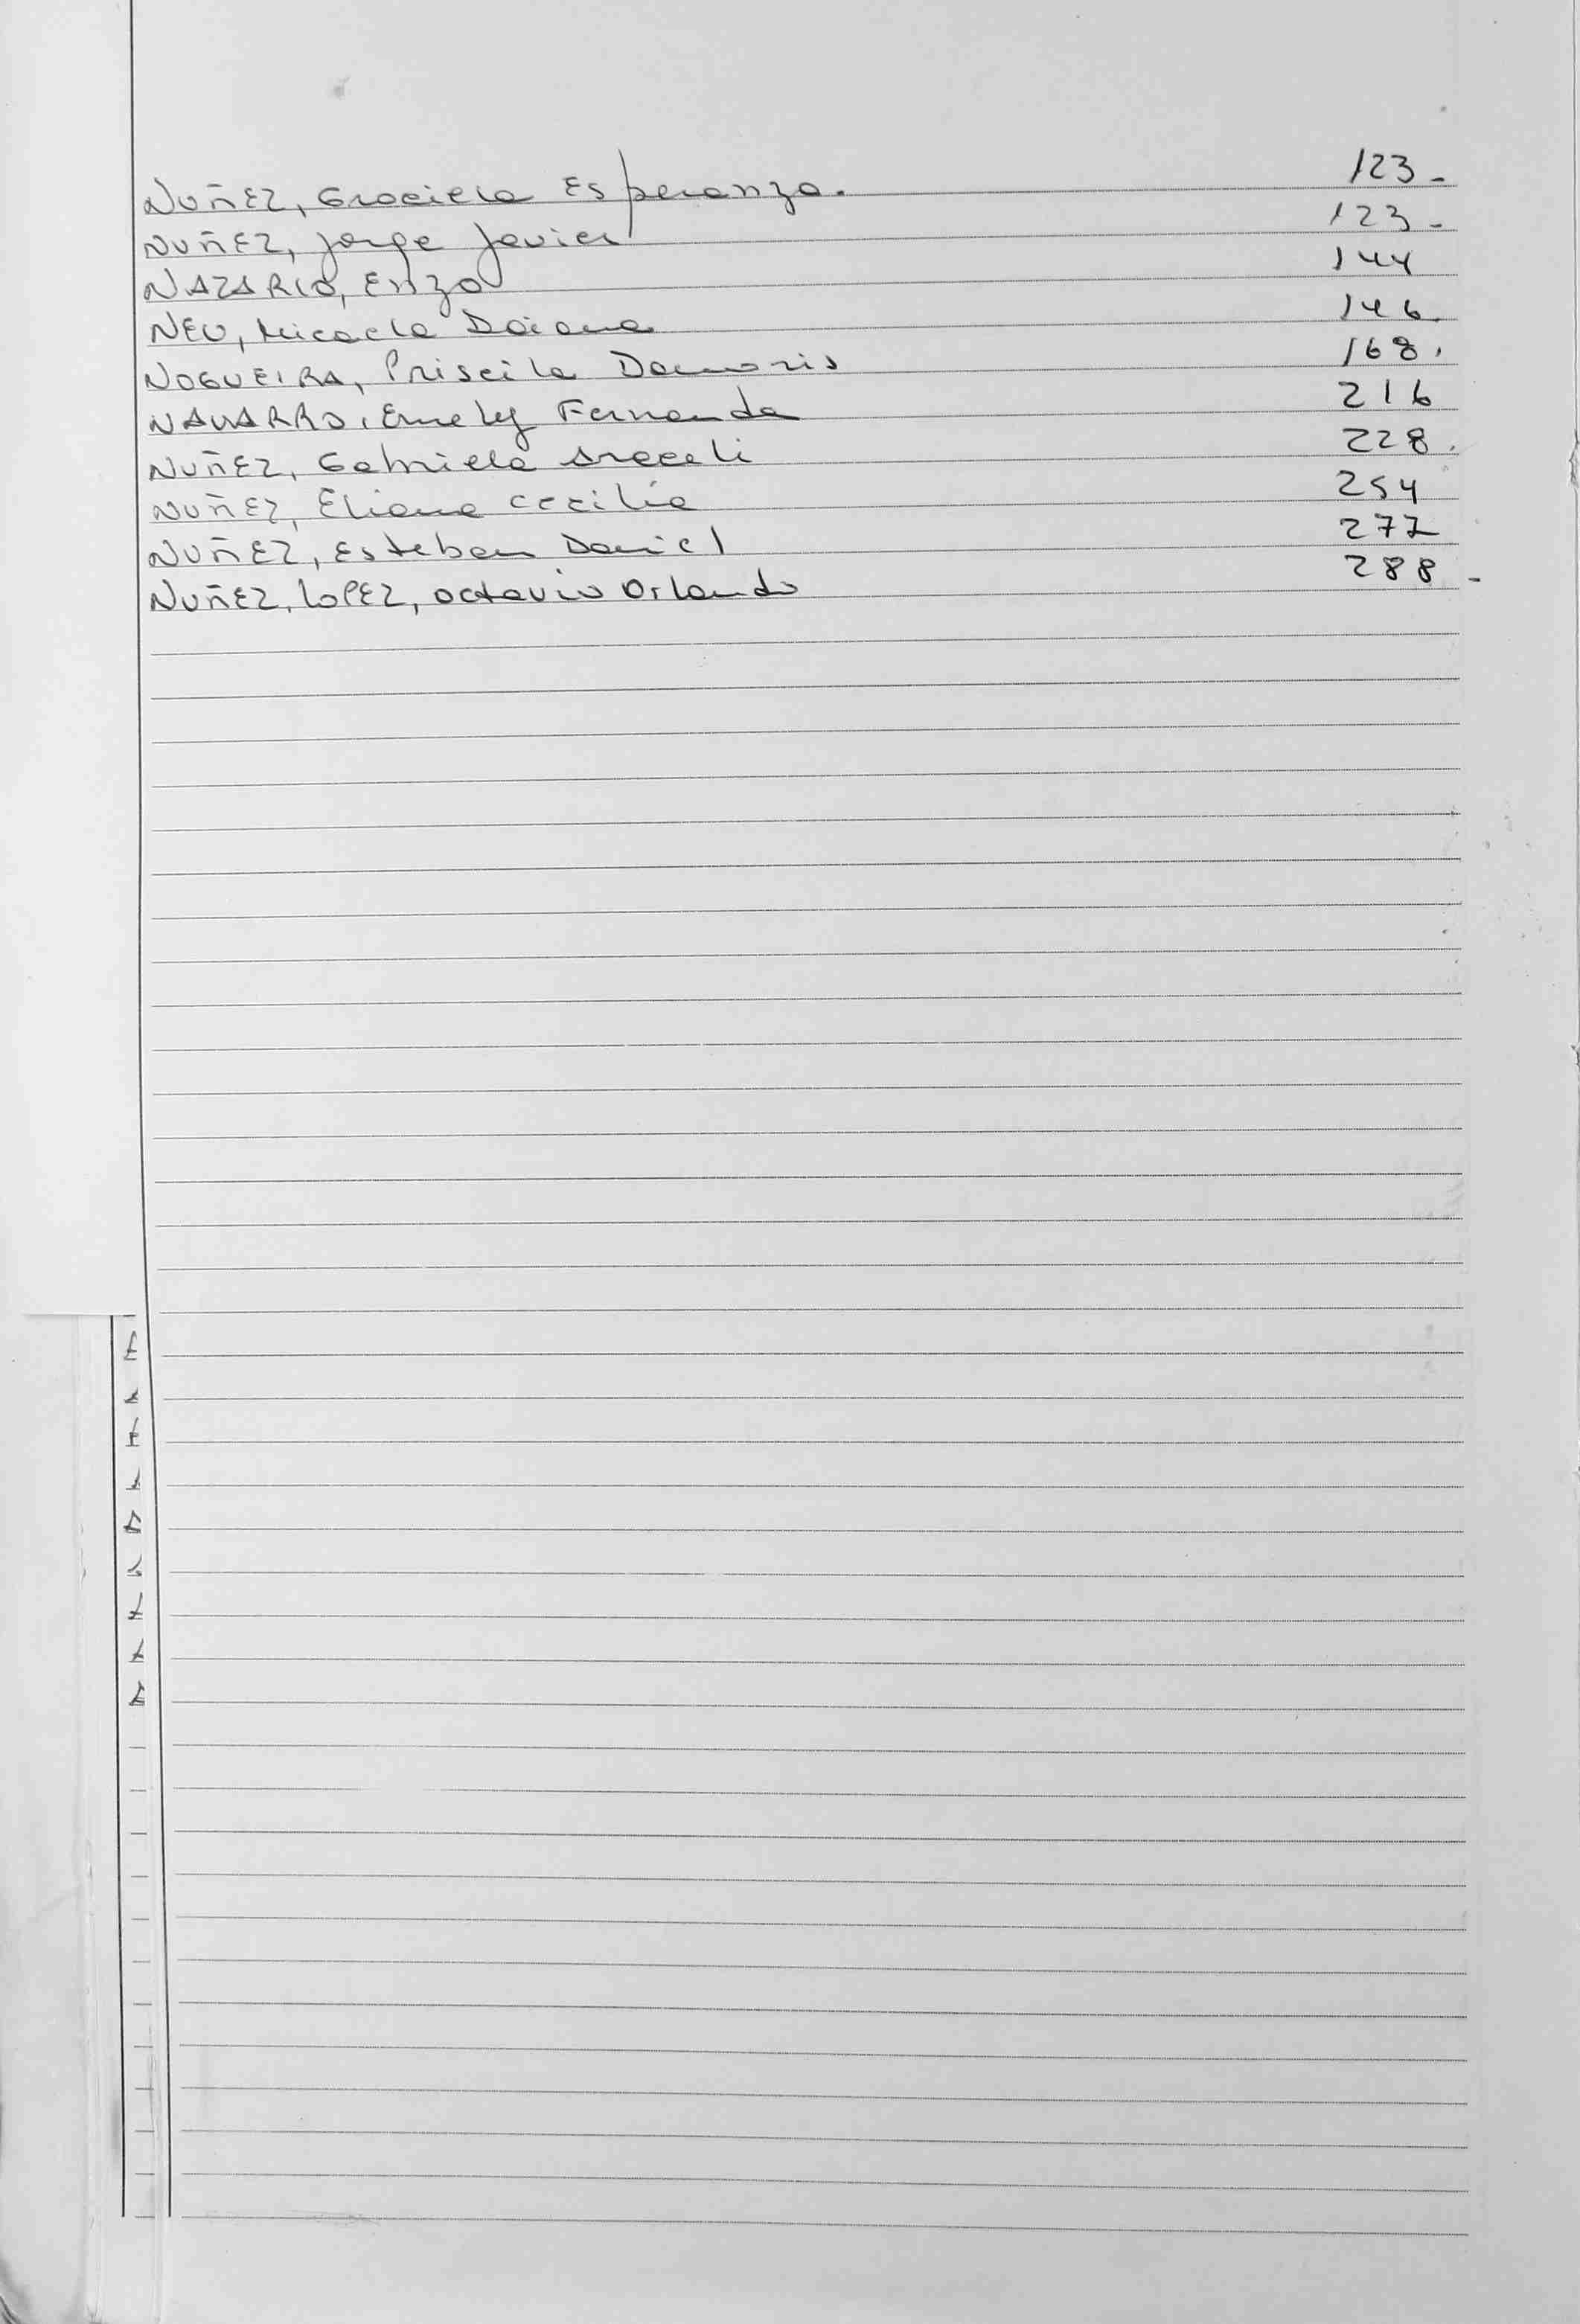 NUÑEZ, Graciela Esperanza. 123-
NUÑEZ, Jorge Javier 123-
NAZARIO, Enzo 144
NEU, Micaela Daiana 146.
NOGUEIRA, Priscila Damaris 168.
NAVARRO, Emely Fernanda 216
NUÑEZ, Gabriela Araceli 228.
NUÑEZ, Eliana Cecilia 254
NUÑEZ, Esteban Daniel 277
NUÑEZ, LOPEZ, Octavio Orlando 288-